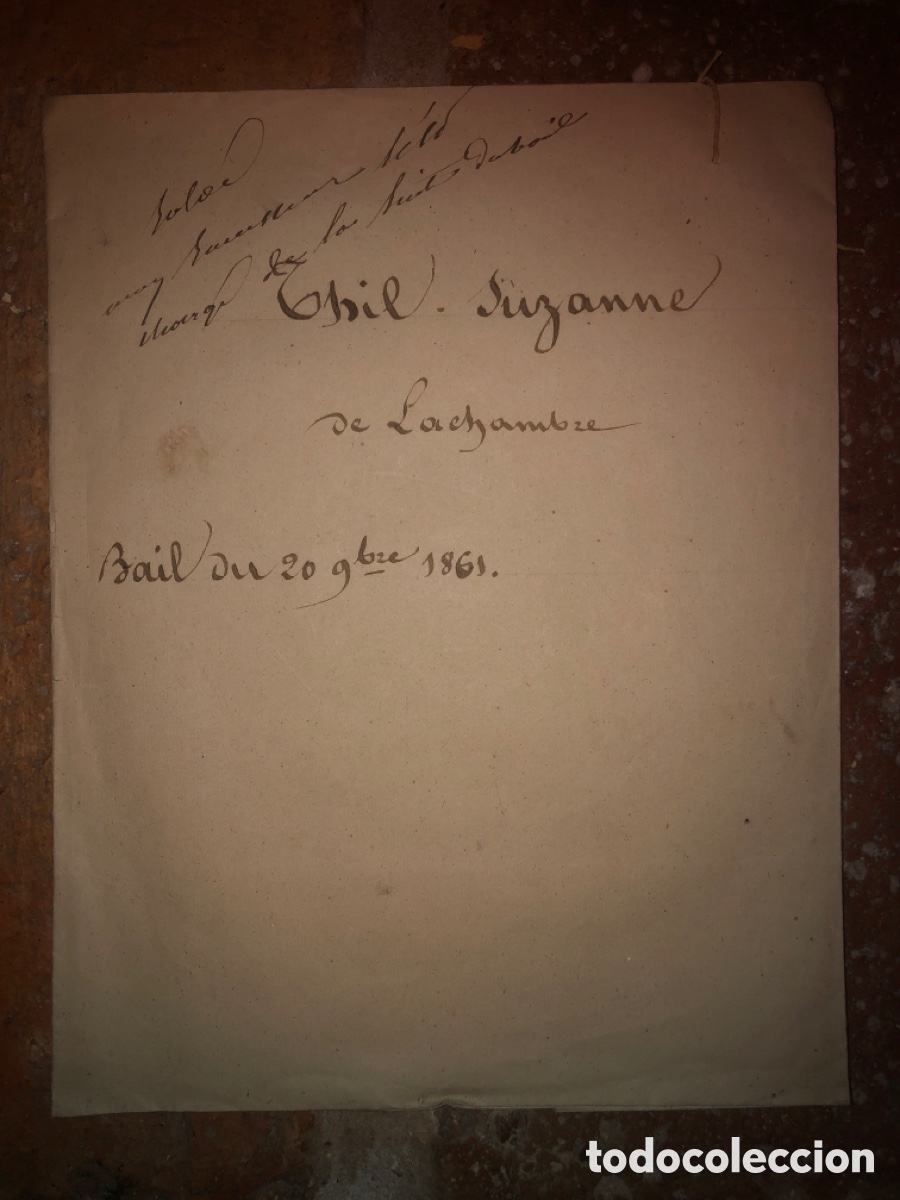 Soldé
charge de la suite du bail
Thil. Suzanne
de Lachambre
Bail du 20 9bre 1861.
todocoleccion